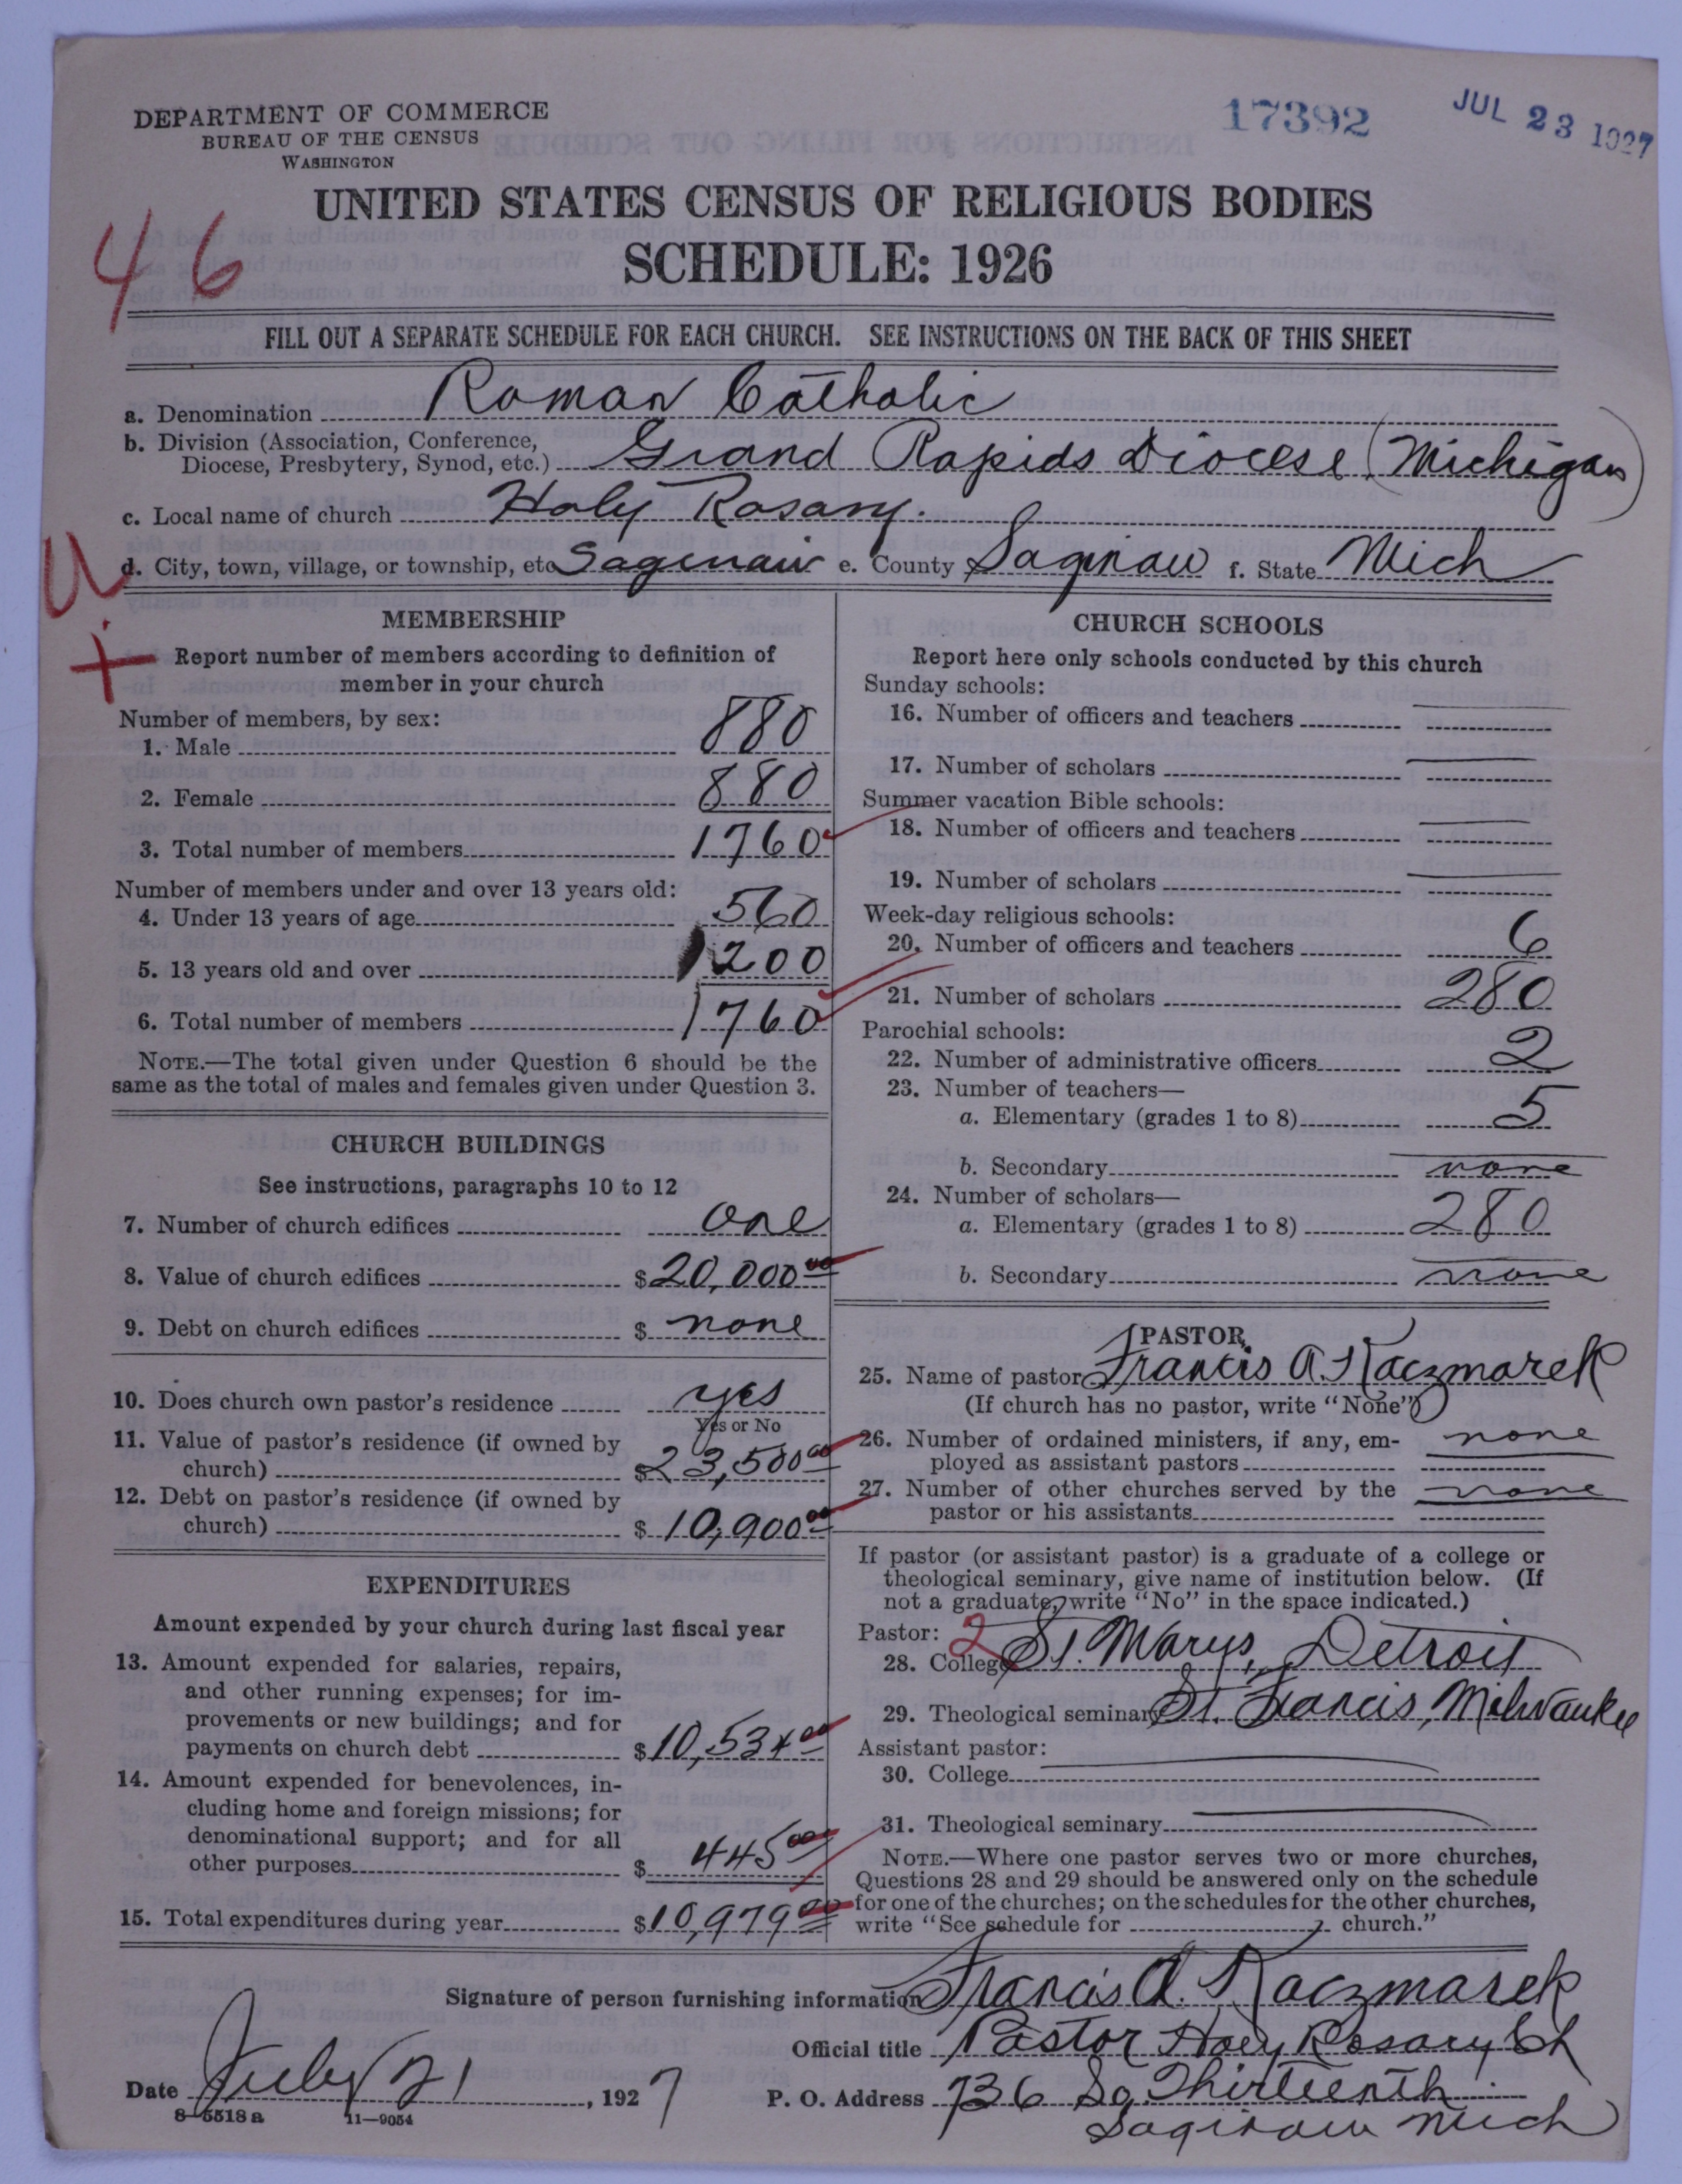 DEPARTMENT OF COMMERCE
BUREAU OF THE CENSUS
WASHINGTON
17392
JUL 23 1927
UNITED STATES CENSUS OF RELIGIOUS BODIES
SCHEDULE: 1926
46
FILL OUT A SEPARATE SCHEDULE FOR EACH CHURCH. SEE INSTRUCTIONS ON THE BACK OF THIS SHEET
a. Denomination Roman Catholic
b. Division (Association, Conference,
Diocese, Presbytery, Synod, etc.) Grand Rapids Diocese (Michigan)
c. Local name of church Holy Rosary.
U
d. City, town, village, or township, etc Saginaw e. County Saginaw f. State Mich
+
MEMBERSHIP
Report number of members according to definition of
member in your church
Number of members, by sex:
1. Male 880
2. Female 880
3. Total number of members 1760
Number of members under and over 13 years old:
4. Under 13 years of age 560
5. 13 years old and over 1200
6. Total number of members 1760
NOTE.—The total given under Question 6 should be the
same as the total of males and females given under Question 3.
CHURCH BUILDINGS
See instructions, paragraphs 10 to 12
7. Number of church edifices one
8. Value of church edifices $20,000 00
9. Debt on church edifices $ none
10. Does church own pastor's residence yes
Yes or No
11. Value of pastor's residence (if owned by
church) $23,500 00
12. Debt on pastor's residence (if owned by
church) $ 10,900 00
EXPENDITURES
Amount expended by your church during last fiscal year
13. Amount expended for salaries, repairs,
and other running expenses; for im-
provements or new buildings; and for
payments on church debt $10,534 00
14. Amount expended for benevolences, in-
cluding home and foreign missions; for
denominational support; and for all
other purposes $ 445 00
15. Total expenditures during year $10,979 00
CHURCH SCHOOLS
Report here only schools conducted by this church
Sunday schools:
16. Number of officers and teachers
17. Number of scholars
Summer vacation Bible schools:
18. Number of officers and teachers
19. Number of scholars
Week-day religious schools:
20. Number of officers and teachers 6
21. Number of scholars 280
Parochial schools:
22. Number of administrative officers 2
23. Number of teachers—
a. Elementary (grades 1 to 8) 5
b. Secondary none
24. Number of scholars—
a. Elementary (grades 1 to 8) 280
b. Secondary none
PASTOR
25. Name of pastor Francis A. Kaczmarek
(If church has no pastor, write "None")
26. Number of ordained ministers, if any, em-
ployed as assistant pastors none
27. Number of other churches served by the
pastor or his assistants none
If pastor (or assistant pastor) is a graduate of a college or
theological seminary, give name of institution below. (If
not a graduate, write "No" in the space indicated.)
Pastor: 2
28. College St. Marys, Detroit
29. Theological seminary St. Francis, Milwaukee
Assistant pastor:
30. College
31. Theological seminary
NOTE.—Where one pastor serves two or more churches,
Questions 28 and 29 should be answered only on the schedule
for one of the churches; on the schedules for the other churches,
write "See schedule for church."
Signature of person furnishing information Francis A. Kaczmarek
Official title Pastor Holy Rosary Ch
Date July 21, 1927 P. O. Address 736 So. Thirteenth
Saginaw Mich
8—5518a 11—9054